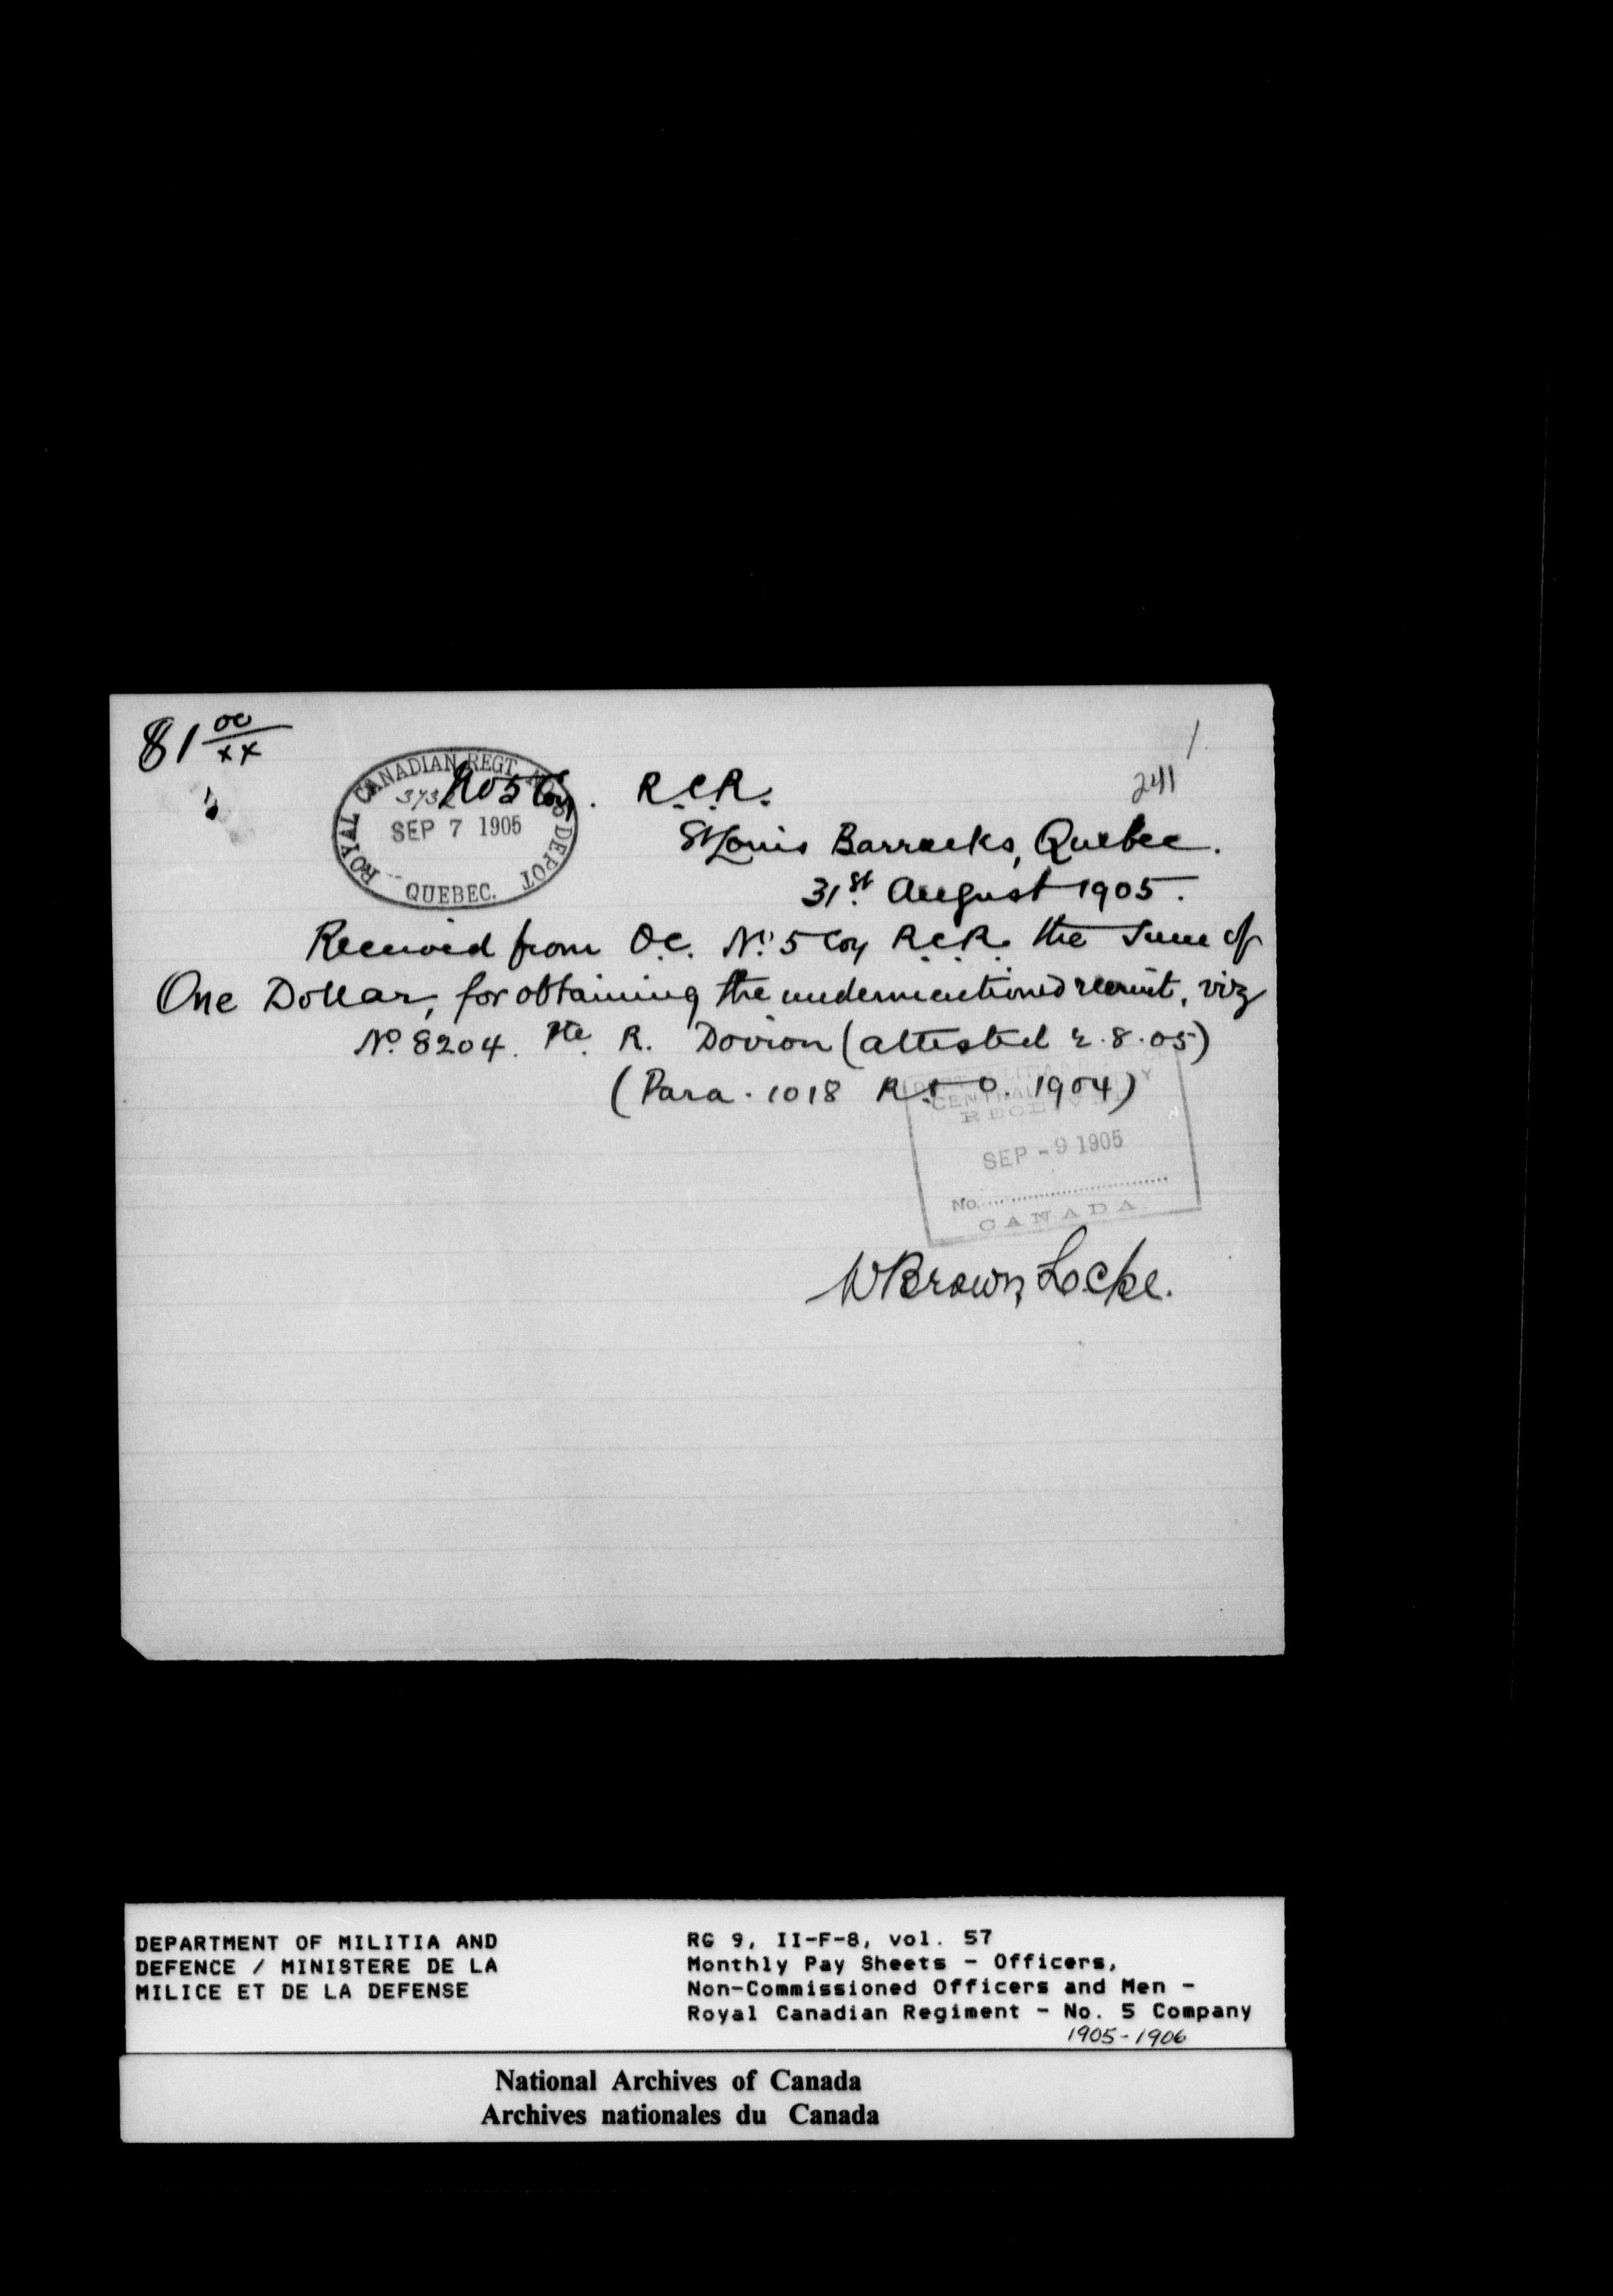 $1 00/xx
1.
241
ROYAL CANADIAN REGT. No 5 DEPOT
373
SEP 7 1905
QUEBEC.
No 5 Coy. R.C.R.
St Louis Barracks, Quebec.
31st August 1905.
Received from O.C. No 5 Coy R.C.R. the sum of
One Dollar, for obtaining the undermentioned recruit, viz
No. 8204. Pte. R. Dorion (attested 2.8.05)
(Para. 1018 R & O. 1904)
CENTRAL
SEP - 9 1905
No.
CANADA
W Brown Locke.
DEPARTMENT OF MILITIA AND
DEFENCE / MINISTERE DE LA
MILICE ET DE LA DEFENSE
RG 9, II-F-8, vol. 57
Monthly Pay Sheets - Officers,
Non-Commissioned Officers and Men -
Royal Canadian Regiment - No. 5 Company
1905-1906
National Archives of Canada
Archives nationales du Canada